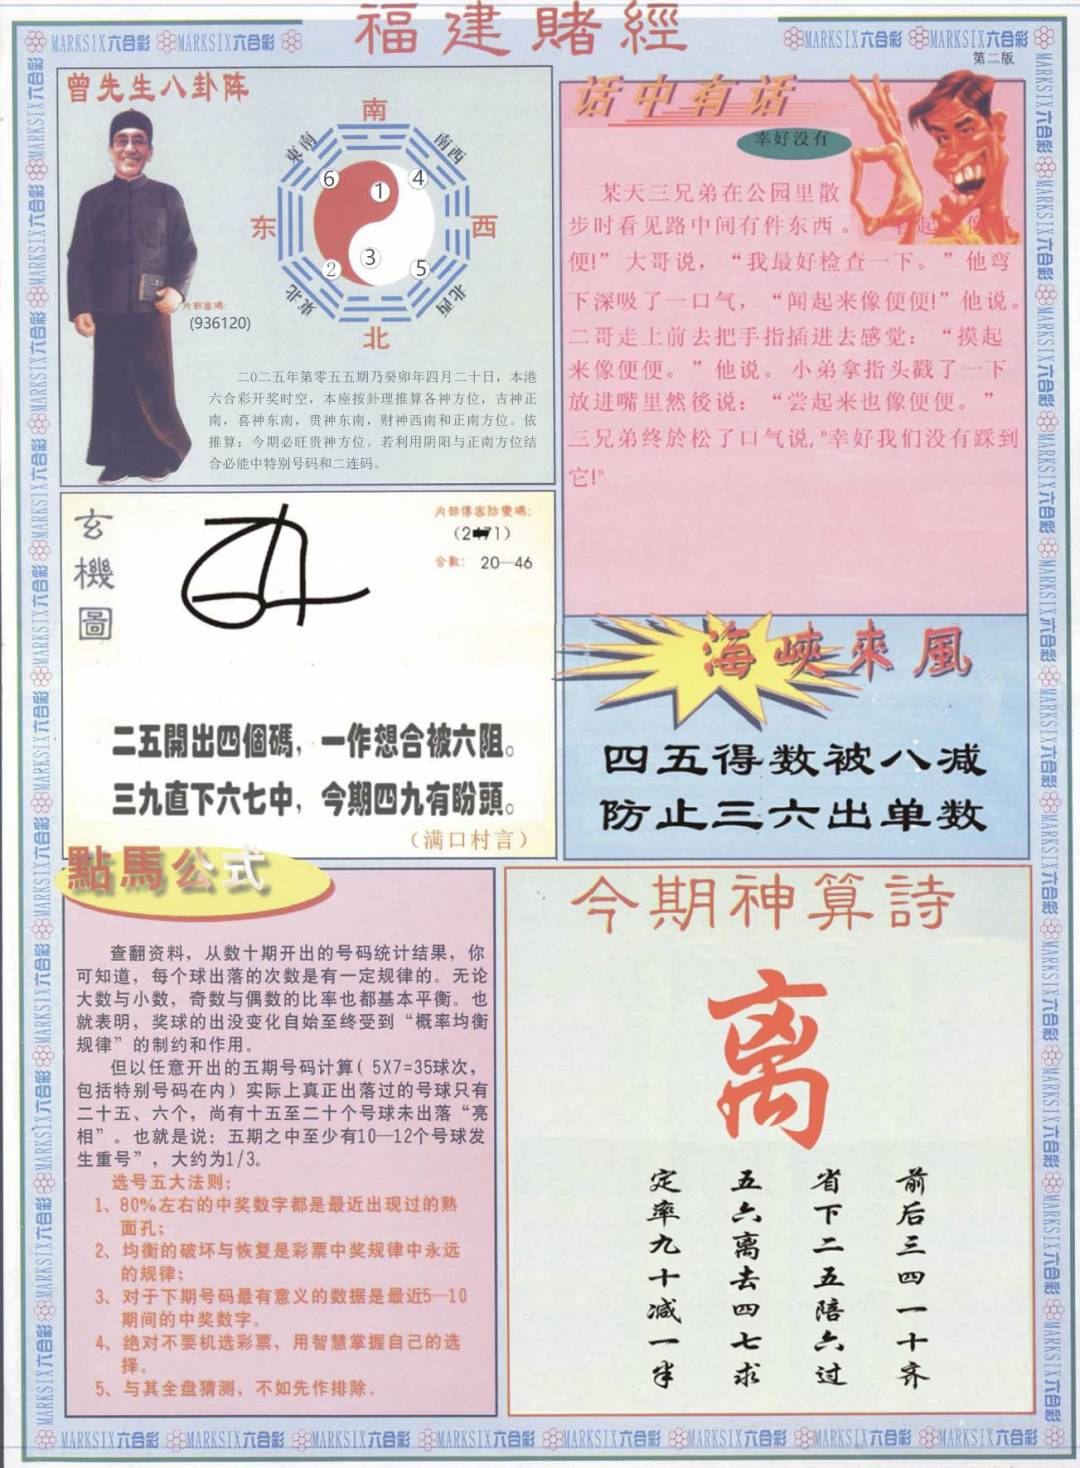 福建賭經
MARKSIX六合彩 MARKSIX六合彩
MARKSIX六合彩 MARKSIX六合彩
第二版
曾先生八卦阵
南
東南
南西
6
1
4
东
西
2
3
5
東北
北西
北
内部密碼:
(936120)
二〇二五年第零五五期乃癸卯年四月二十日，本港
六合彩开奖时空，本座按卦理推算各神方位，吉神正
南，喜神东南，贵神东南，财神西南和正南方位。依
推算：今期必旺贵神方位。若利用阴阳与正南方位结
合必能中特别号码和二连码。
话中有话
幸好没有
某天三兄弟在公园里散
步时看见路中间有件东西。
便!” 大哥说，“我最好检查一下。”他弯
下深吸了一口气，“闻起来像便便!”他说。
二哥走上前去把手指插进去感觉：“摸起
来像便便。”他说。小弟拿指头戳了一下
放进嘴里然後说：“尝起来也像便便。”
三兄弟终於松了口气说,"幸好我们没有踩到
它!"
玄機圖
内部傳密防變碼:
合數: 20—46
二五開出四個碼，一作想合被六阻。
三九直下六七中，今期四九有盼頭。
（满口村言）
海峽來風
四五得数被八减
防止三六出单数
點馬公式
查翻资料，从数十期开出的号码统计结果，你
可知道，每个球出落的次数是有一定规律的。无论
大数与小数，奇数与偶数的比率也都基本平衡。也
就表明，奖球的出没变化自始至终受到“概率均衡
规律”的制约和作用。
但以任意开出的五期号码计算( 5X7=35球次，
包括特别号码在内）实际上真正出落过的号球只有
二十五、六个，尚有十五至二十个号球未出落“亮
相”。也就是说：五期之中至少有10—12个号球发
生重号”，大约为1/3。
选号五大法则：
1、80%左右的中奖数字都是最近出现过的熟
面孔；
2、均衡的破坏与恢复是彩票中奖规律中永远
的规律；
3、对于下期号码最有意义的数据是最近5—10
期间的中奖数字。
4、绝对不要机选彩票，用智慧掌握自己的选
择。
5、与其全盘猜测，不如先作排除。
今期神算詩
离
前后三四一十齐
省下二五陪六过
五六离去四七求
定率九十减一半
MARKSIX六合彩 MARKSIX六合彩 MARKSIX六合彩 MARKSIX六合彩 MARKSIX六合彩 MARKSIX六合彩 MARKSIX六合彩 MARKSIX六合彩